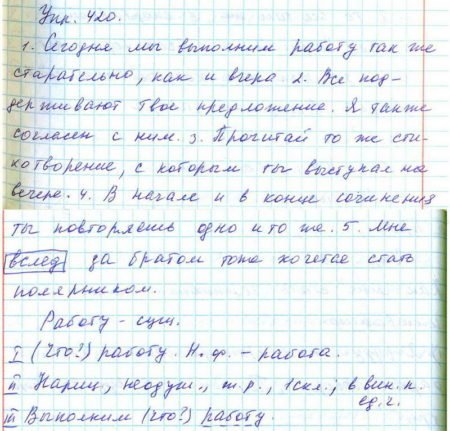 Упр. 420.
1. Сегодня мы выполним работу так же
старательно, как и вчера. 2. Все под-
держивают твое предложение. Я также
согласен с ним. 3. Прочитай то же сти-
хотворение, с которым ты выступал на
вечере. 4. В начале и в конце сочинения
ты повторяешь одно и то же. 5. Мне
вслед за братом тоже хочется стать
полярником.
Работу - сущ.
I (Что?) работу. Н. ф. - работа.
II Нариц., неодуш., ж. р., 1 скл.; в вин. п.
ед. ч.
III Выполним (что?) работу.